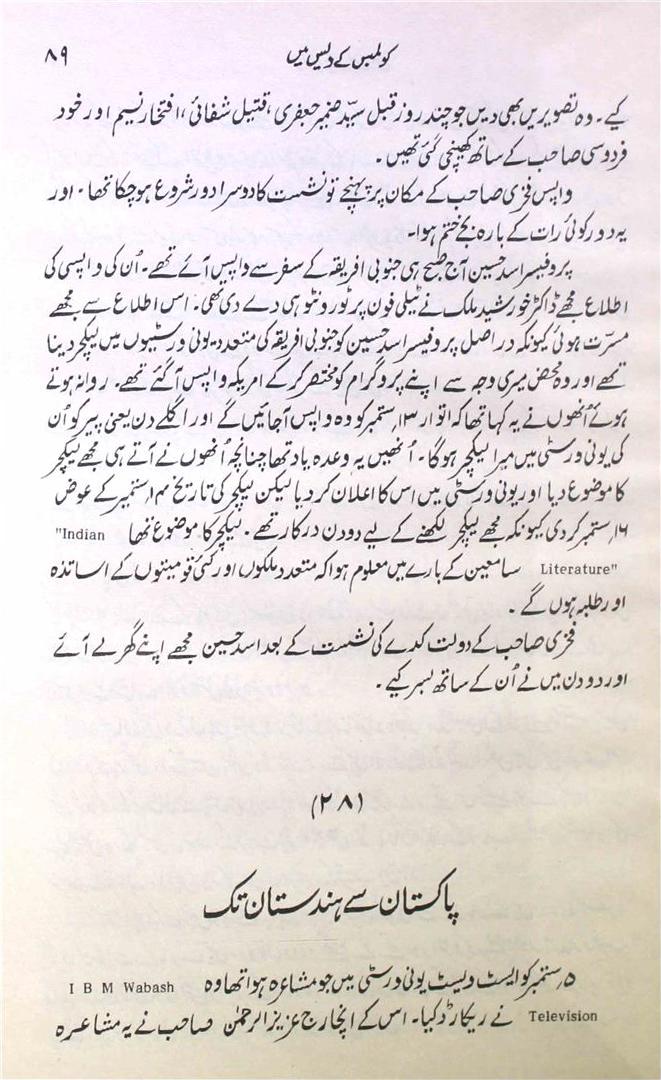 کولمبس کے دیس میں ۸۹
کیے۔ وہ تصویریں بھی دیں جو چند روز قبل سیّد ضمیر جعفری، قتیل شفائی، افتخار نسیم اور خود
فردوسی صاحب کے ساتھ کھینچی گئی تھیں۔
واپس فخری صاحب کے مکان پر پہنچے تو نشست کا دوسرا دور شروع ہو چکا تھا۔ اور
یہ دور کوئی رات کے بارہ بجے ختم ہوا۔
پروفیسر اسد حسین آج صبح ہی جنوبی افریقہ کے سفر سے واپس آئے تھے۔ اُن کی واپسی کی
اطلاع مجھے ڈاکٹر خورشید ملک نے ٹیلی فون پر ٹورونٹو ہی دے دی تھی۔ اس اطلاع سے مجھے
مسرّت ہوئی کیونکہ دراصل پروفیسر اسد حسین کو جنوبی افریقہ کی متعدد یونی ورسٹیوں میں لیکچر دینا
تھے اور وہ محض میری وجہ سے اپنے پروگرام کو مختصر کر کے امریکہ واپس آ گئے تھے۔ روانہ ہوتے
ہوئے اُنھوں نے یہ کہا تھا کہ اتوار ۱۳ ستمبر کو وہ واپس آ جائیں گے اور اگلے دن یعنی پیر کو اُن
کی یونی ورسٹی میں میرا لیکچر ہوگا۔ اُنھیں یہ وعدہ یاد تھا چنانچہ اُنھوں نے آتے ہی مجھے لیکچر
کا موضوع دیا اور یونی ورسٹی میں اس کا اعلان کر دیا لیکن لیکچر کی تاریخ ۱۴ ستمبر کے عوض
۱۶ ستمبر کر دی کیونکہ مجھے لیکچر لکھنے کے لیے دو دن درکار تھے۔ لیکچر کا موضوع تھا "Indian
Literature" سامعین کے بارے میں معلوم ہوا کہ متعدد ملکوں اور کئی قومیتوں کے اساتذہ
اور طلبہ ہوں گے۔
فخری صاحب کے دولت کدے کی نشست کے بعد اسد حسین مجھے اپنے گھر لے آئے
اور دو دن میں نے اُن کے ساتھ بسر کیے۔
(۲۸)
پاکستان سے ہندستان تک
۵ ستمبر کو ایسٹ ویسٹ یونی ورسٹی میں جو مشاعرہ ہوا تھا وہ I B M Wabash
Television نے ریکارڈ کیا۔ اس کے انچارج عزیز الرحمٰن صاحب نے یہ مشاعرہ